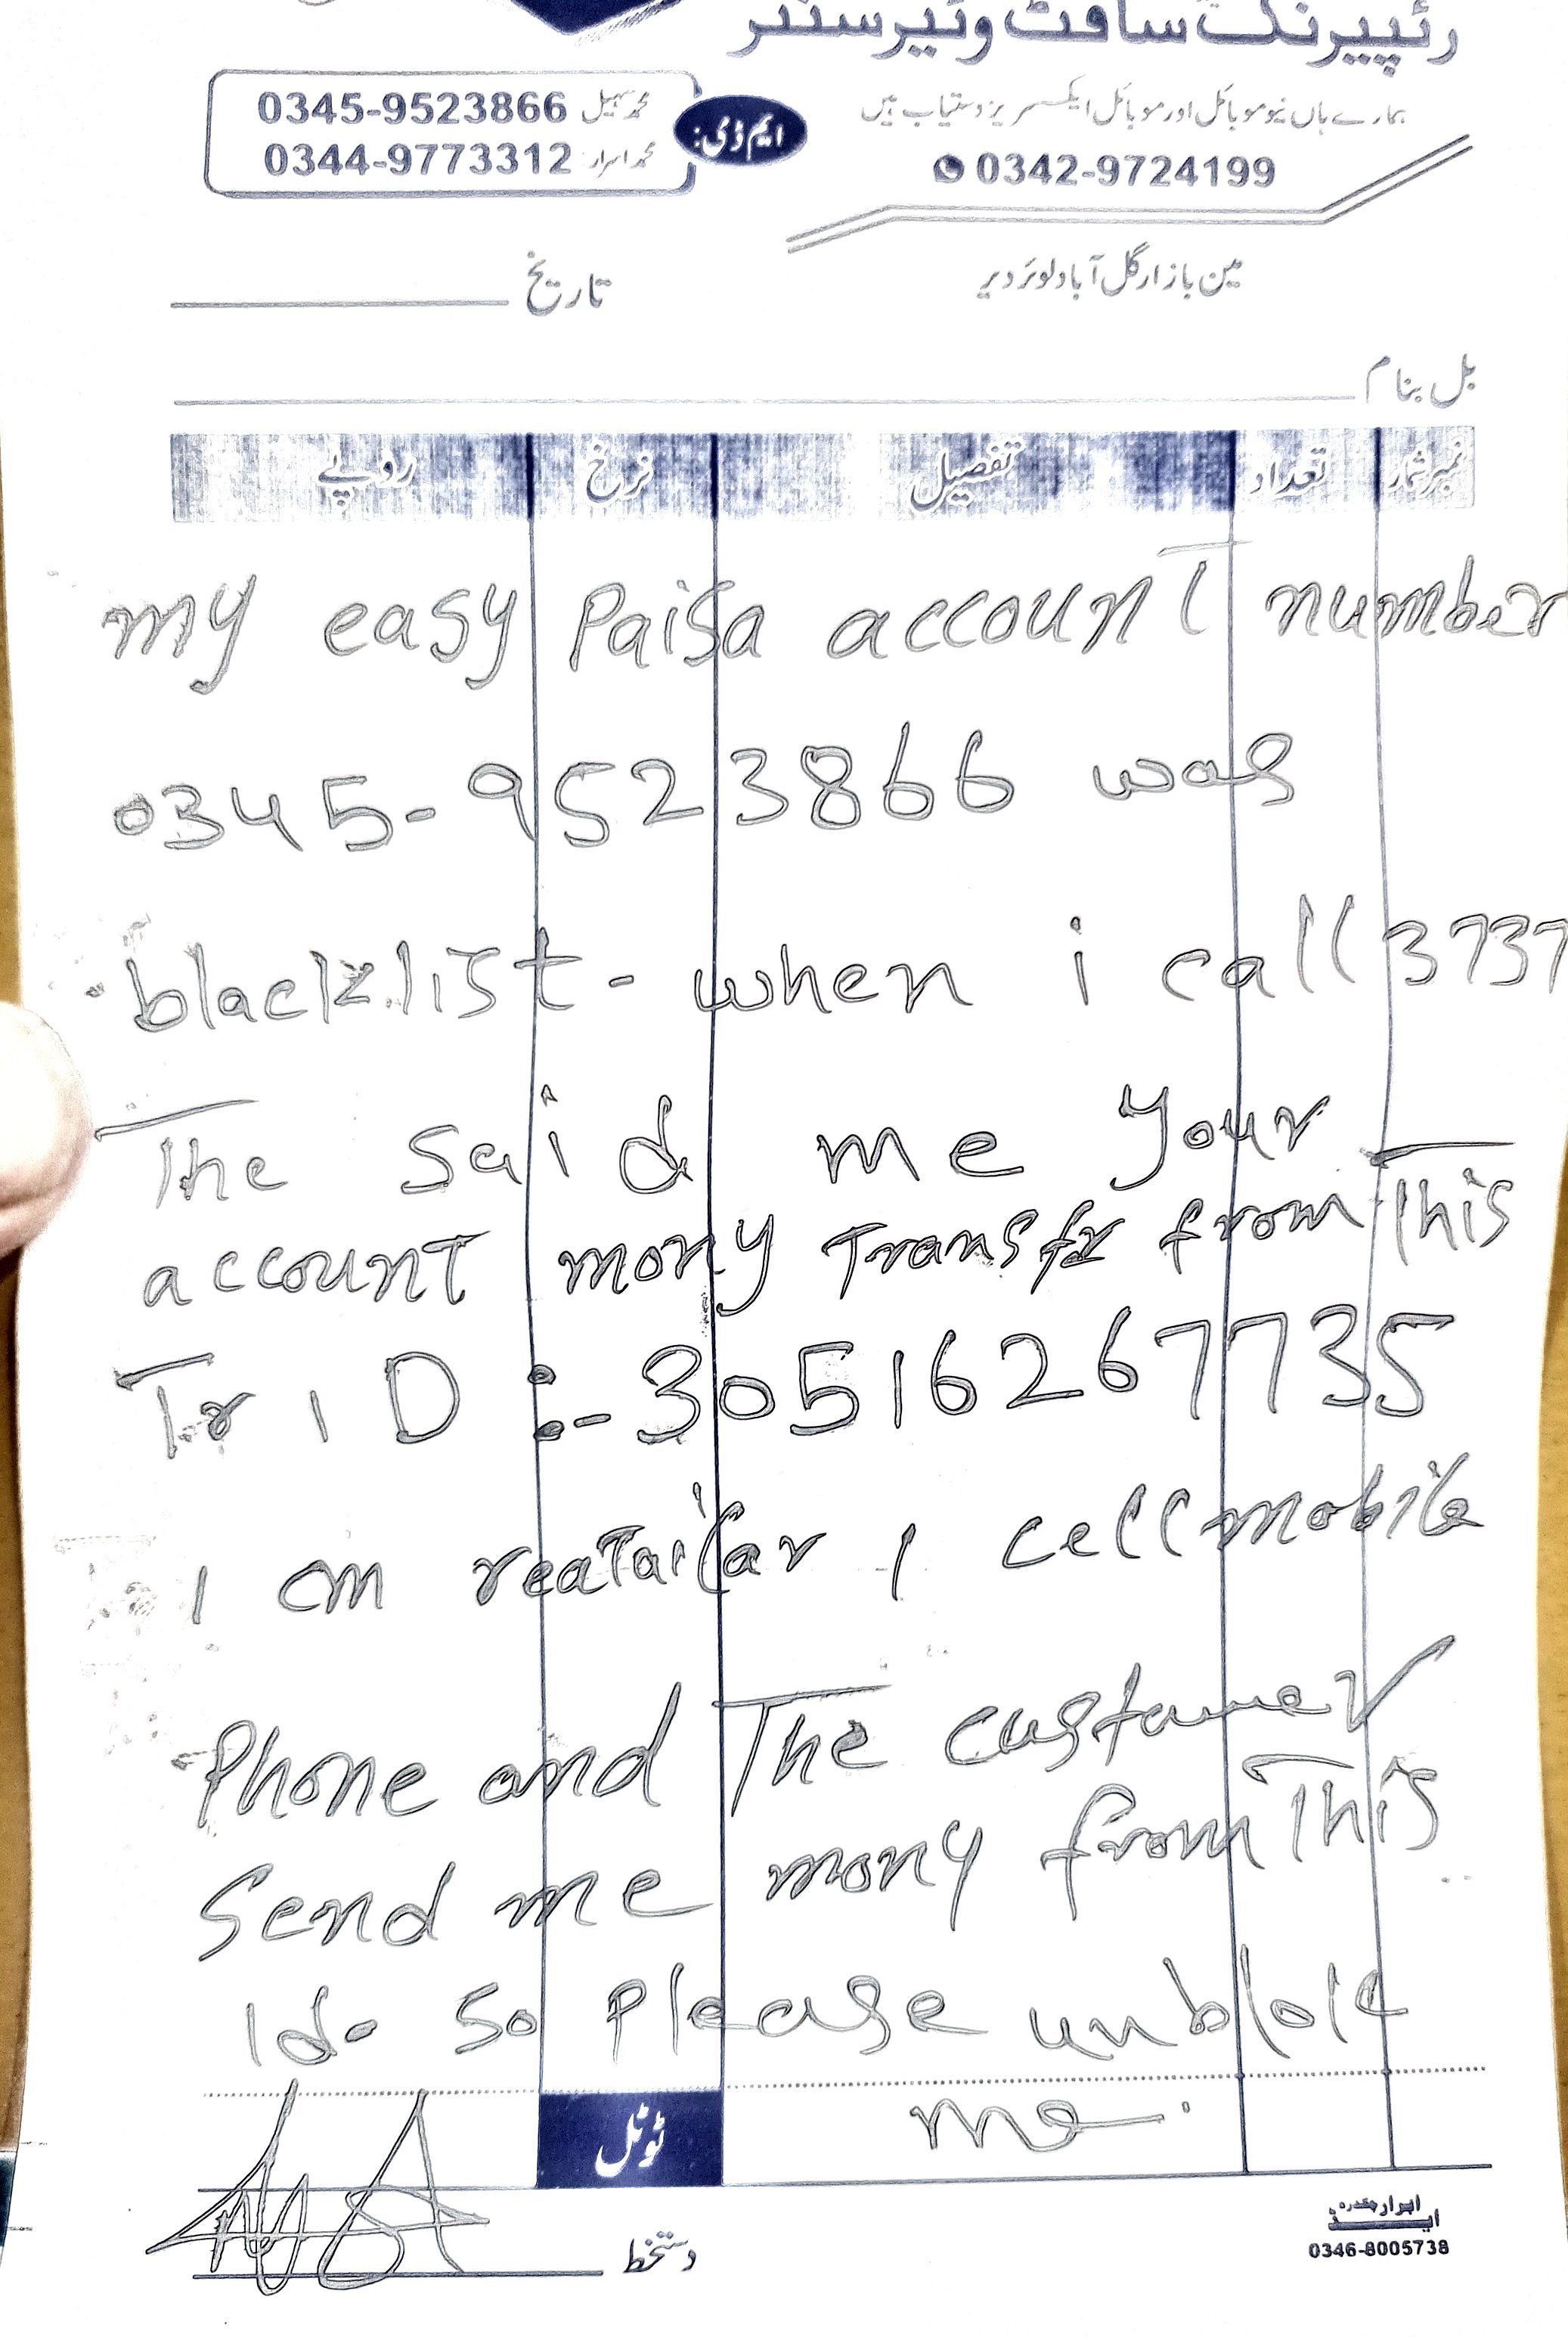 رئپیرنگ سافٹ وئیر سنٹر
ہمارے ہاں نیو موبائل اور موبائل ایکسسریز دستیاب ہیں
0342-9724199
ایم ڈی:
محمد سہیل 0345-9523866
محمد اسرار 0344-9773312
مین بازار گل آباد لوئر دیر
تاریخ
بل بنام
نمبر شمار تعداد تفصیل نرخ روپے
my easy Paisa account number
0345-9523866 was
blacklist - when i call 3737
The said me your
account mony Transfr from This
Tr ID :- 30516267735
I am reatailar , cell mobile
Phone and The customer
send me mony from This
Id- so Please unblolc
me.
ٹوٹل
دستخط
0346-8005738